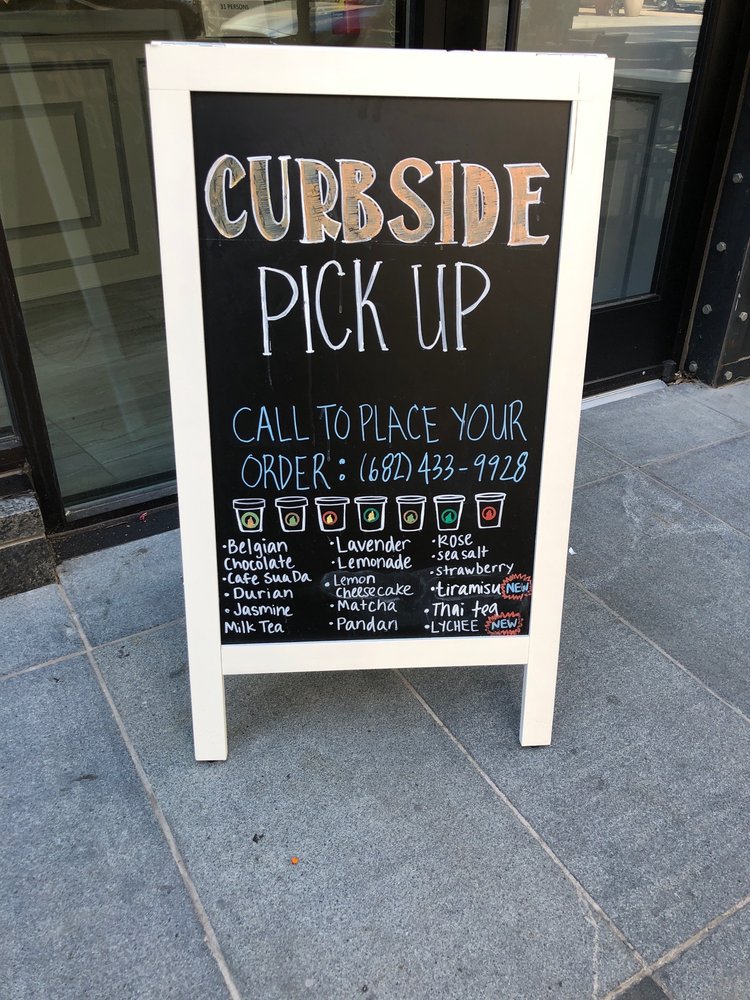 31 PERSONS
CURBSIDE
PICK UP
CALL TO PLACE YOUR
ORDER: (682) 433-9928
•Belgian
Chocolate
•Cafe Sua Da
•Durian
•Jasmine
Milk Tea
•Lavender
•Lemonade
•Lemon
Cheesecake
•Matcha
•Pandan
•Rose
•sea salt
•strawberry
•tiramisu NEW
•Thai tea
•LYCHEE NEW